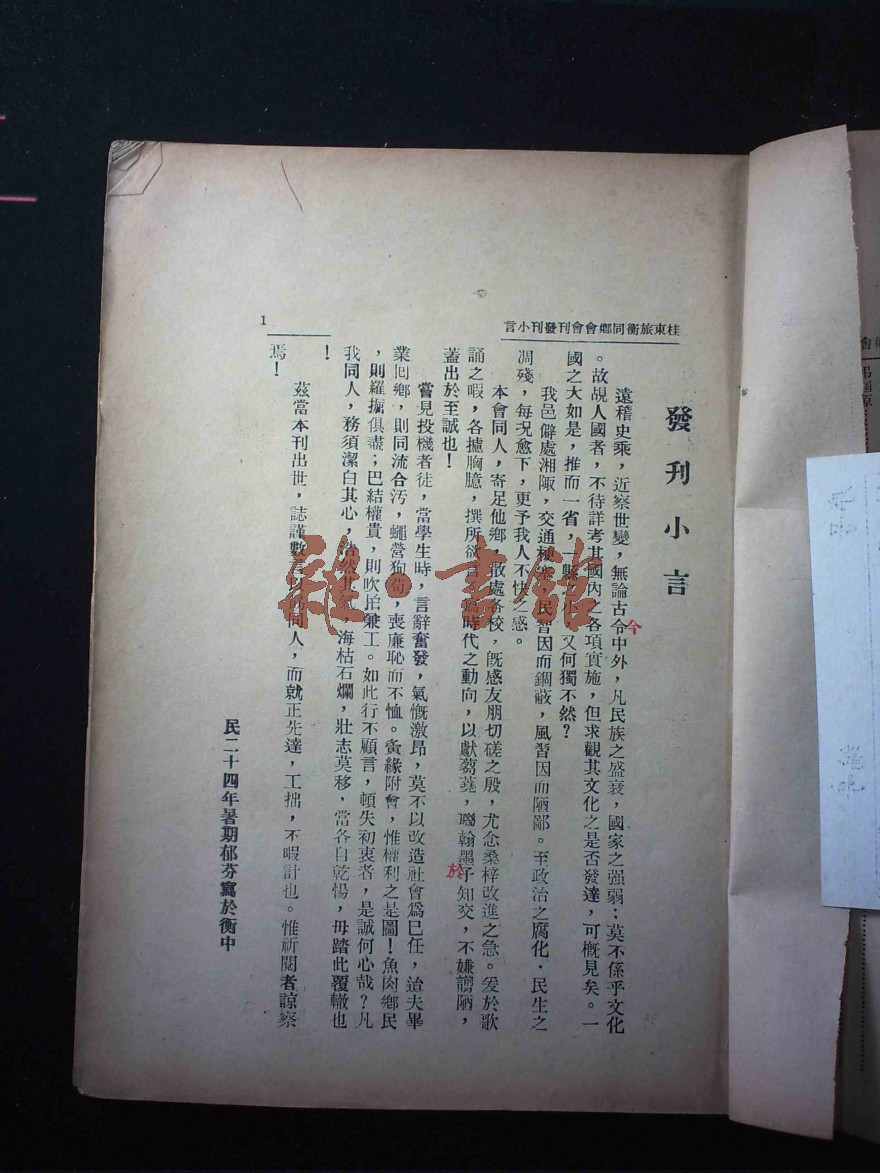 桂東旅衡同鄉會會刊發刊小言
1
發刊小言
遠稽史乘，近察世變，無論古今中外，凡民族之盛衰，國家之强弱；莫不係乎文化
。故覘人國者，不待詳考其國內之各項實施，但求觀其文化之是否發達，可概見矣。一
國之大如是，推而一省，一縣之小，又何獨不然？
我邑僻處湘陬，交通梗塞，民智因而錮蔽，風習因而陋鄙。至政治之腐化．民生之
凋殘，每況愈下，更予我人不快之感。
本會同人，寄足他鄉，散處各校，既感友朋切磋之殷，尤念桑梓改進之急。爰於歌
誦之暇，各攄胸臆，撰所欲言，爲時代之動向，以獻芻蕘，聯翰墨予知交，不嫌謭陋，
蓋出於至誠也！
嘗見投機者徒，當學生時，言辭奮發，氣慨激昂，莫不以改造社會爲已任，迨夫畢
業囘鄉，則同流合汚，蠅營狗苟，喪廉恥而不恤。夤緣附會，惟權利之是圖！魚肉鄉民
，則羅擄俱盡；巴結權貴，則吹拍兼工。如此行不顧言，頓失初衷者，是誠何心哉？凡
我同人，務須潔白其心，浩然其氣，海枯石爛，壯志莫移，當各自乾惕，毋踏此覆轍也
！
茲當本刊出世，誌謹數言以勉同人，而就正先達，工拙，不暇計也。惟祈閱者諒察
焉！
民二十四年暑期郁芬寫於衡中
今
於
雜·書館